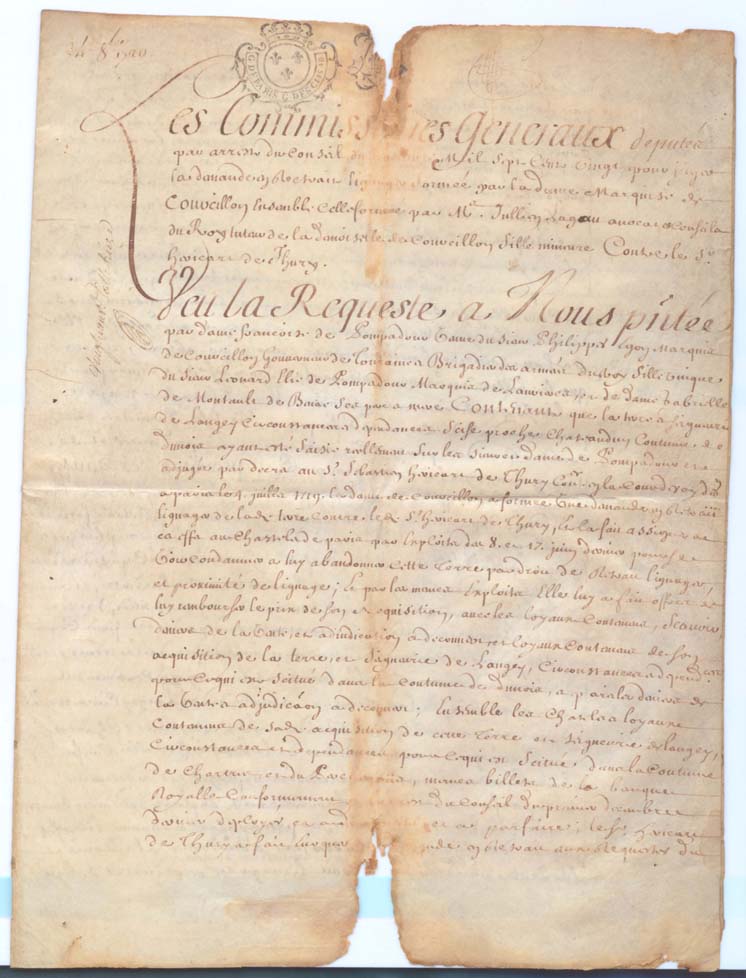 24 8bre 1720
G. DE PARIS G. DES
Les Commissaires Generaux deputez
par arrest du Conseil du Mil Sept Cent Vingt pour juger
la demande en retrait lignager formée par la dame Marquise de
Courcillon Ensemble Celle formée par Me. Jullien avocat Conseil
du Roy tuteur de la damoiselle de Courcillon fille mineure Contre le Sr.
hericart de Thury.
Veu la Requeste a Nous pntée
par dame francoise de Pompadour Veuve du Sieur Philippes Egon Marquis
de Courcillon Gouverneur de Touraine Brigadier des armées du Roy fille unique
du Sieur Leonard Elie de Pompadour Marquis de Lauriere, et de dame Gabrielle
de Montault de ses pere et mere Contenant que la terre et Seigneurie
de Langey Circonstances et dependances Scise proche Chateaudun Coutume de
dunois ayant esté Saisie reellement Sur les Sieur et dame de Pompadour et
adjugée par decret au Sr. Sebastien hericart de Thury Coner. en la Cour
a paris le juillet 1719. la dame de Courcillon a formée Une demande en retrait
lignager de lade. terre Contre led. Sr. hericart de Thury, Et la fait assigner a
cet effet au Chastelet de paris par Exploits des 8. et 17. juin dernier pour se
Voir Condamner a luy abandonner Cette Terre par droit de Reseau lignager,
et proximité de lignage; Et par les mesmes Exploits Elle luy a fait offrir de
luy rembourser le prix de son acquisition, avec les loyaux Coutemens, Scavoir,
deniers de la Vente, et adjudication a decouvert, et loyaux Coutemens de son
acquisition de la terre, et Seigneurie de Langey, Circonstances et dépend.
pour Ce qui est Scitué dans la Coutume de dunois, a les deniers de
la Vente et adjudicaôn a decouvert; Ensemble les et loyaux
Coutemens de sade. acquisition de cette Terre et Seigneurie de Langey,
Circonstances et dependances pour Ce qui est Scitué dans la Coutume
de Chartres et du mesmes billets de la banque
Royalle Conformement du Conseil du
dernier et a parfaire; le Sr. hericart
de Thury a fait en retrait aux Requestes du